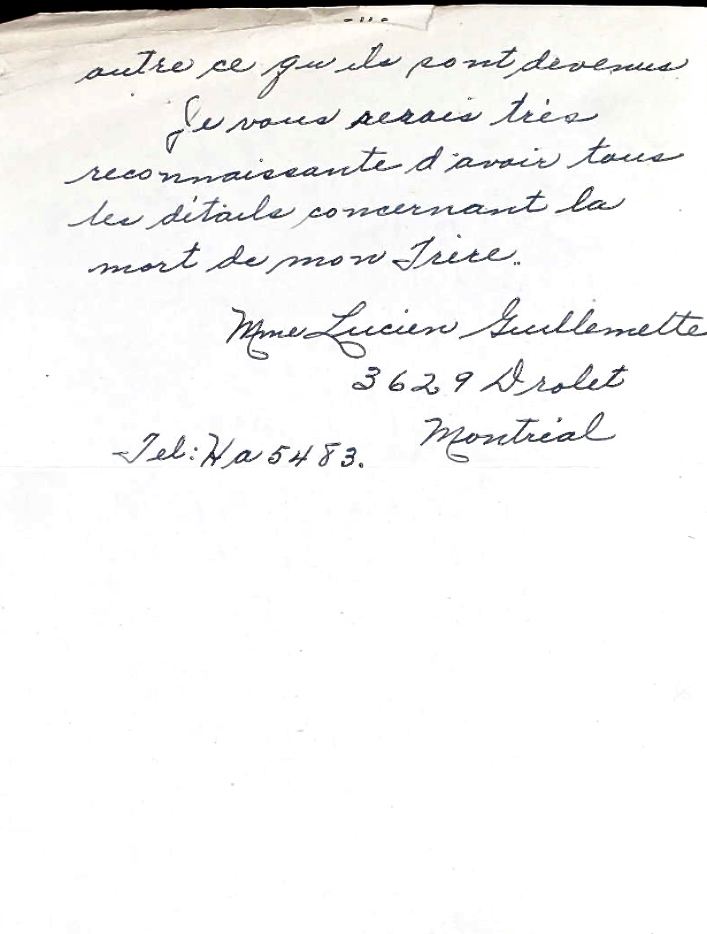 autre ce qu'ils sont devenus
Je vous serais très
reconnaissante d'avoir tous
les détails concernant la
mort de mon Frère.
Mme Lucien Guillemette
3629 Drolet
Montréal
Tel: Ha 5483.